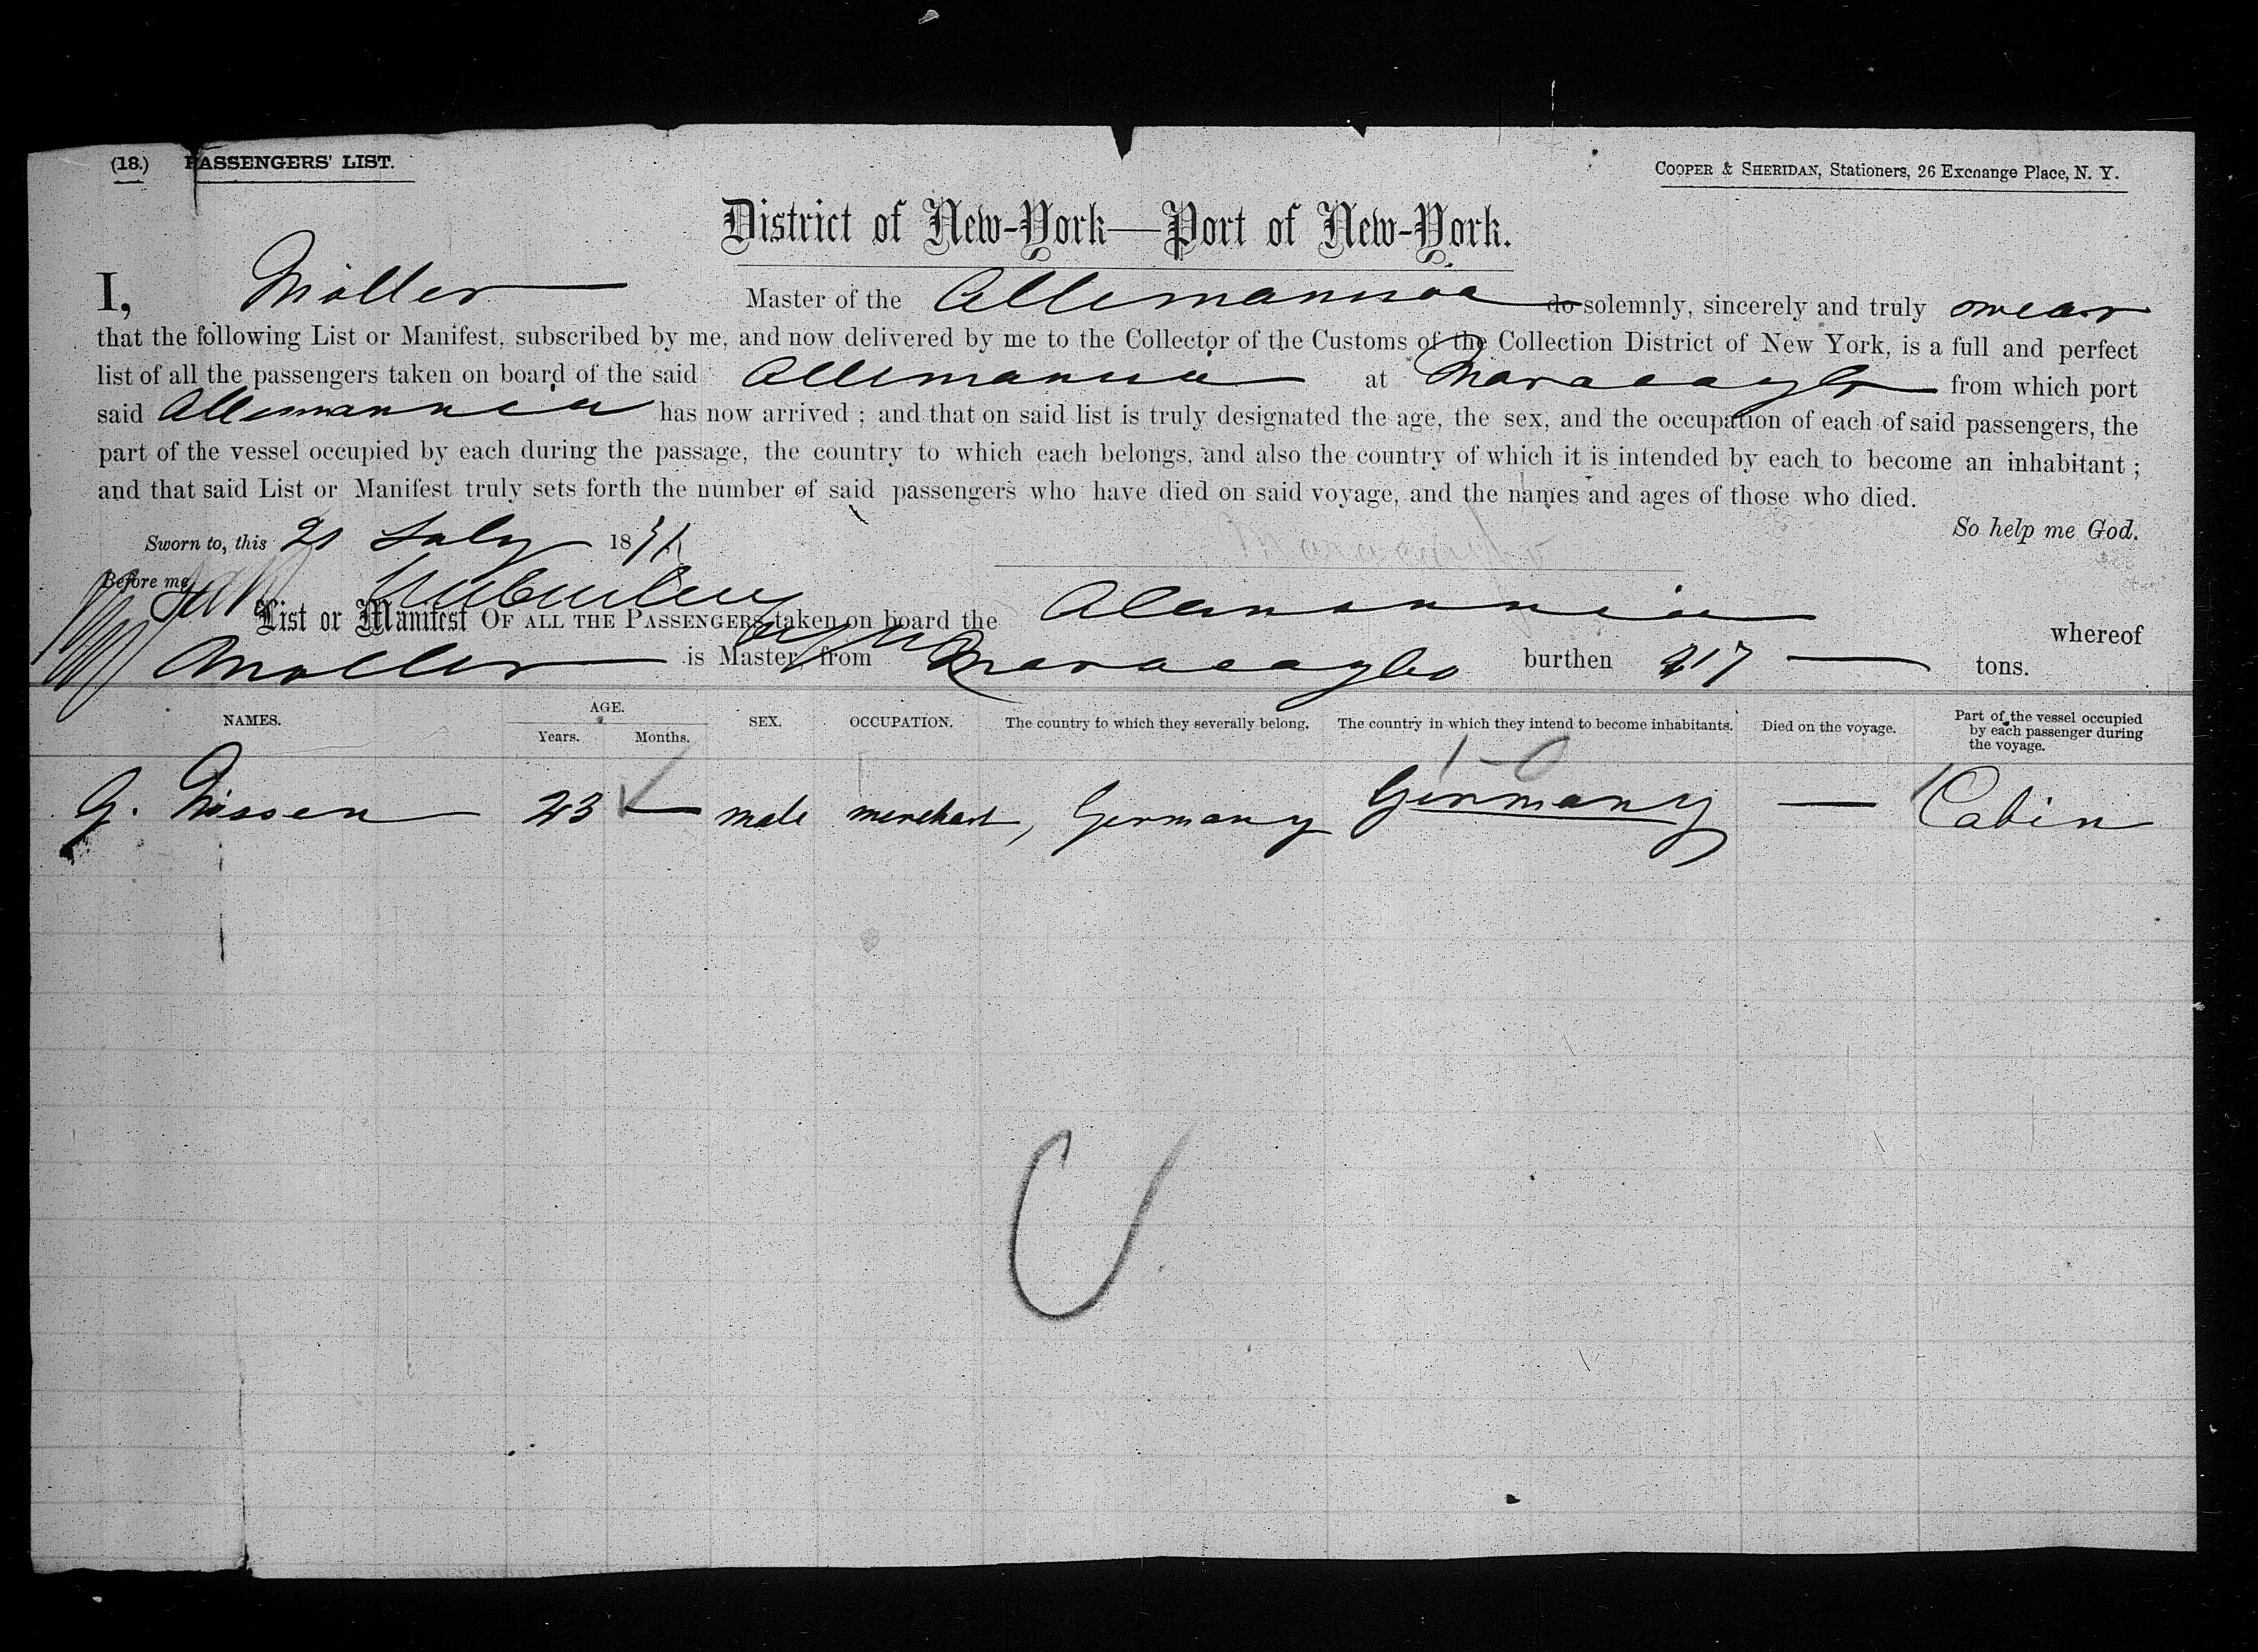 (18.) PASSENGERS' LIST.
COOPER & SHERIDAN, Stationers, 26 Exchange Place, N. Y.
District of New-York—Port of New-York.
I, Möller Master of the Allemannia do solemnly, sincerely and truly swear
that the following List or Manifest, subscribed by me, and now delivered by me to the Collector of the Customs of the Collection District of New York, is a full and perfect
list of all the passengers taken on board of the said Allemannia at Maracaybo from which port
said Allemannia has now arrived ; and that on said list is truly designated the age, the sex, and the occupation of each of said passengers, the
part of the vessel occupied by each during the passage, the country to which each belongs, and also the country of which it is intended by each to become an inhabitant ;
and that said List or Manifest truly sets forth the number of said passengers who have died on said voyage, and the names and ages of those who died.
So help me God.
Sworn to, this 21 July 1871
Maracaybo
Before me,
List or Manifest OF ALL THE PASSENGERS taken on board the Alemannia whereof
Möller is Master, from Maracaybo burthen 217 — tons.
NAMES. AGE. Years. Months. SEX. OCCUPATION. The country to which they severally belong. The country in which they intend to become inhabitants. Died on the voyage. Part of the vessel occupied by each passenger during the voyage.
1 - 0
G. Nissen 23 — male merchant, Germany Germany — Cabin